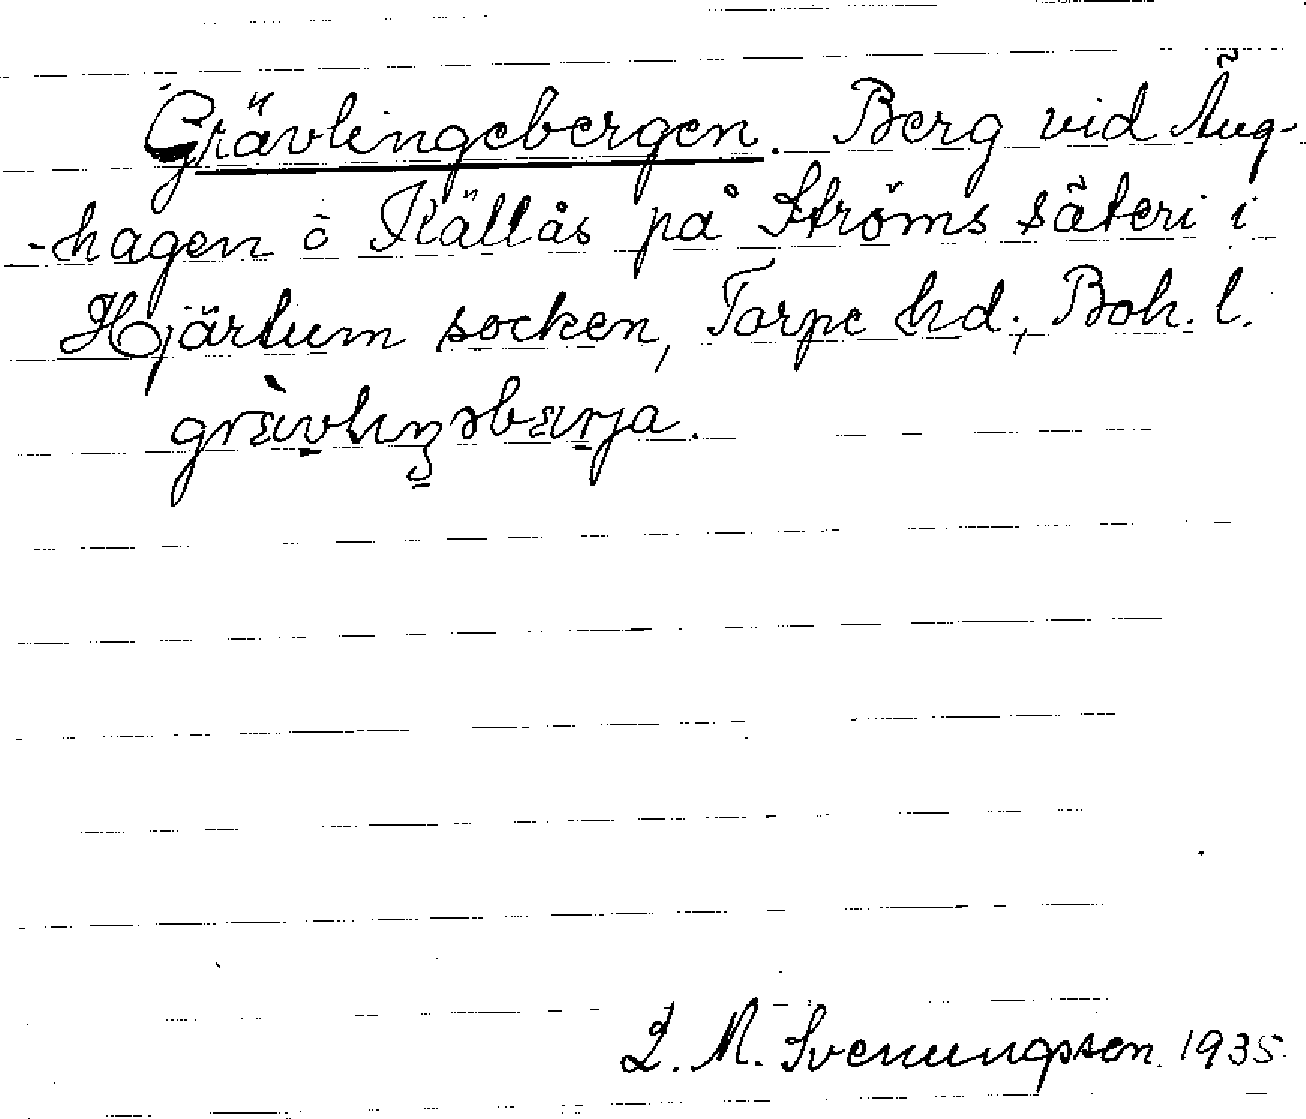 Grävlingebergen. Berg vid Äng-
-hagen ö Källås på Ströms säteri i
Hjärtum socken, Torpe hd., Boh. l.
grävlıŋəbærja.
L. M. Svenungsson 1935